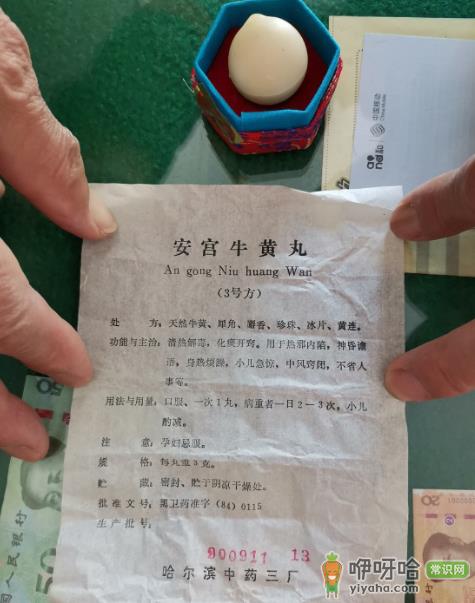 中国移动
China Mobile
and和
安宫牛黄丸
An gong Niu huang Wan
(3号方)
处 方:天然牛黄、犀角、麝香、珍珠、冰片、黄连。
功能与主治:清热解毒,化痰开窍。用于热邪内陷,神昏谵
语,身热烦躁,小儿急惊,中风窍闭,不省人
事等。
用法与用量:口服、一次1丸,病重者一日2-3次,小儿
酌减。
注 意:孕妇忌服。
规 格:每丸重3克。
贮 藏:密封、贮于阴凉干燥处。
批准文号:黑卫药准字(84)0115
生产批号:
900911 13
哈尔滨中药三厂
国人民银行
50
20
咿呀哈 常识网
yiyaha.com